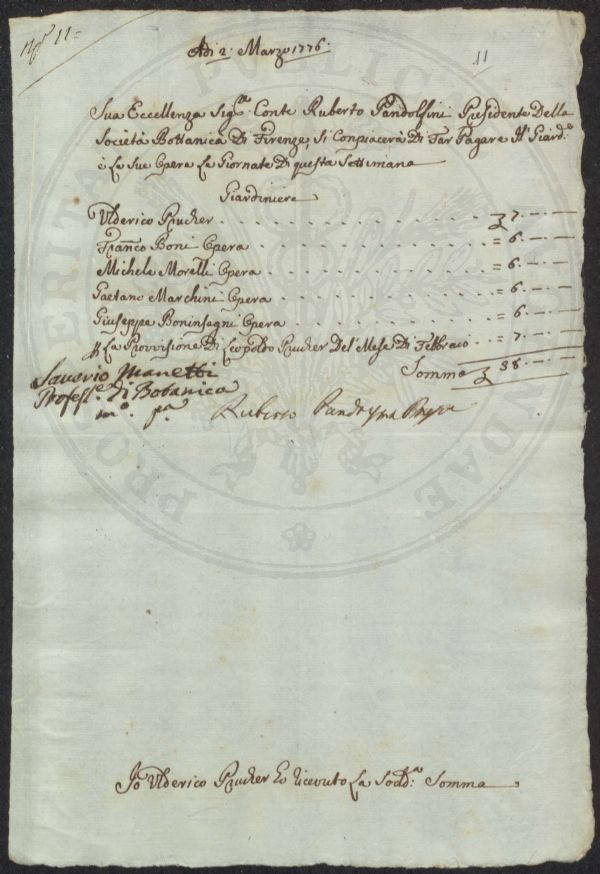 N.º 11 =
11
Adi 2. Marzo 1776.
Sua Eccellenza Sig.ʳᵉ Conte Ruberto Pandolfini Presidente Della
Società Bottanica Di Firenze, Si Conpiacerà Di Far Pagare Il Giard.ᵉ
è La Sue Opera La Giornate Di questa Settimana
Giardiniere
Vlderico Prucher . . . . . . . . . . . . . . . . 7. — . —
Franco Boni Opera . . . . . . . . . . . . . = 6. — . —
Michele Morelli Opera . . . . . . . . . . . = 6. — . —
Gaetano Marchini Opera . . . . . . . . . . = 6. — . —
Giuseppe Boninsagni Opera . . . . . . . . . = 6. — . —
La Provisione Di Leopoldo Prucher Del' Mese Di Febbraio . . = 7. — . —
Somma 38. — . —
Saverio Manetti
Profess.ᵉ di Botanica
m.º p.ª
Ruberto Pandolfini
Io Vlderico Prucher Ho ricevuto La Sodd.ª Somma
PROSPERITATI PUBLICAE AUGENDAE